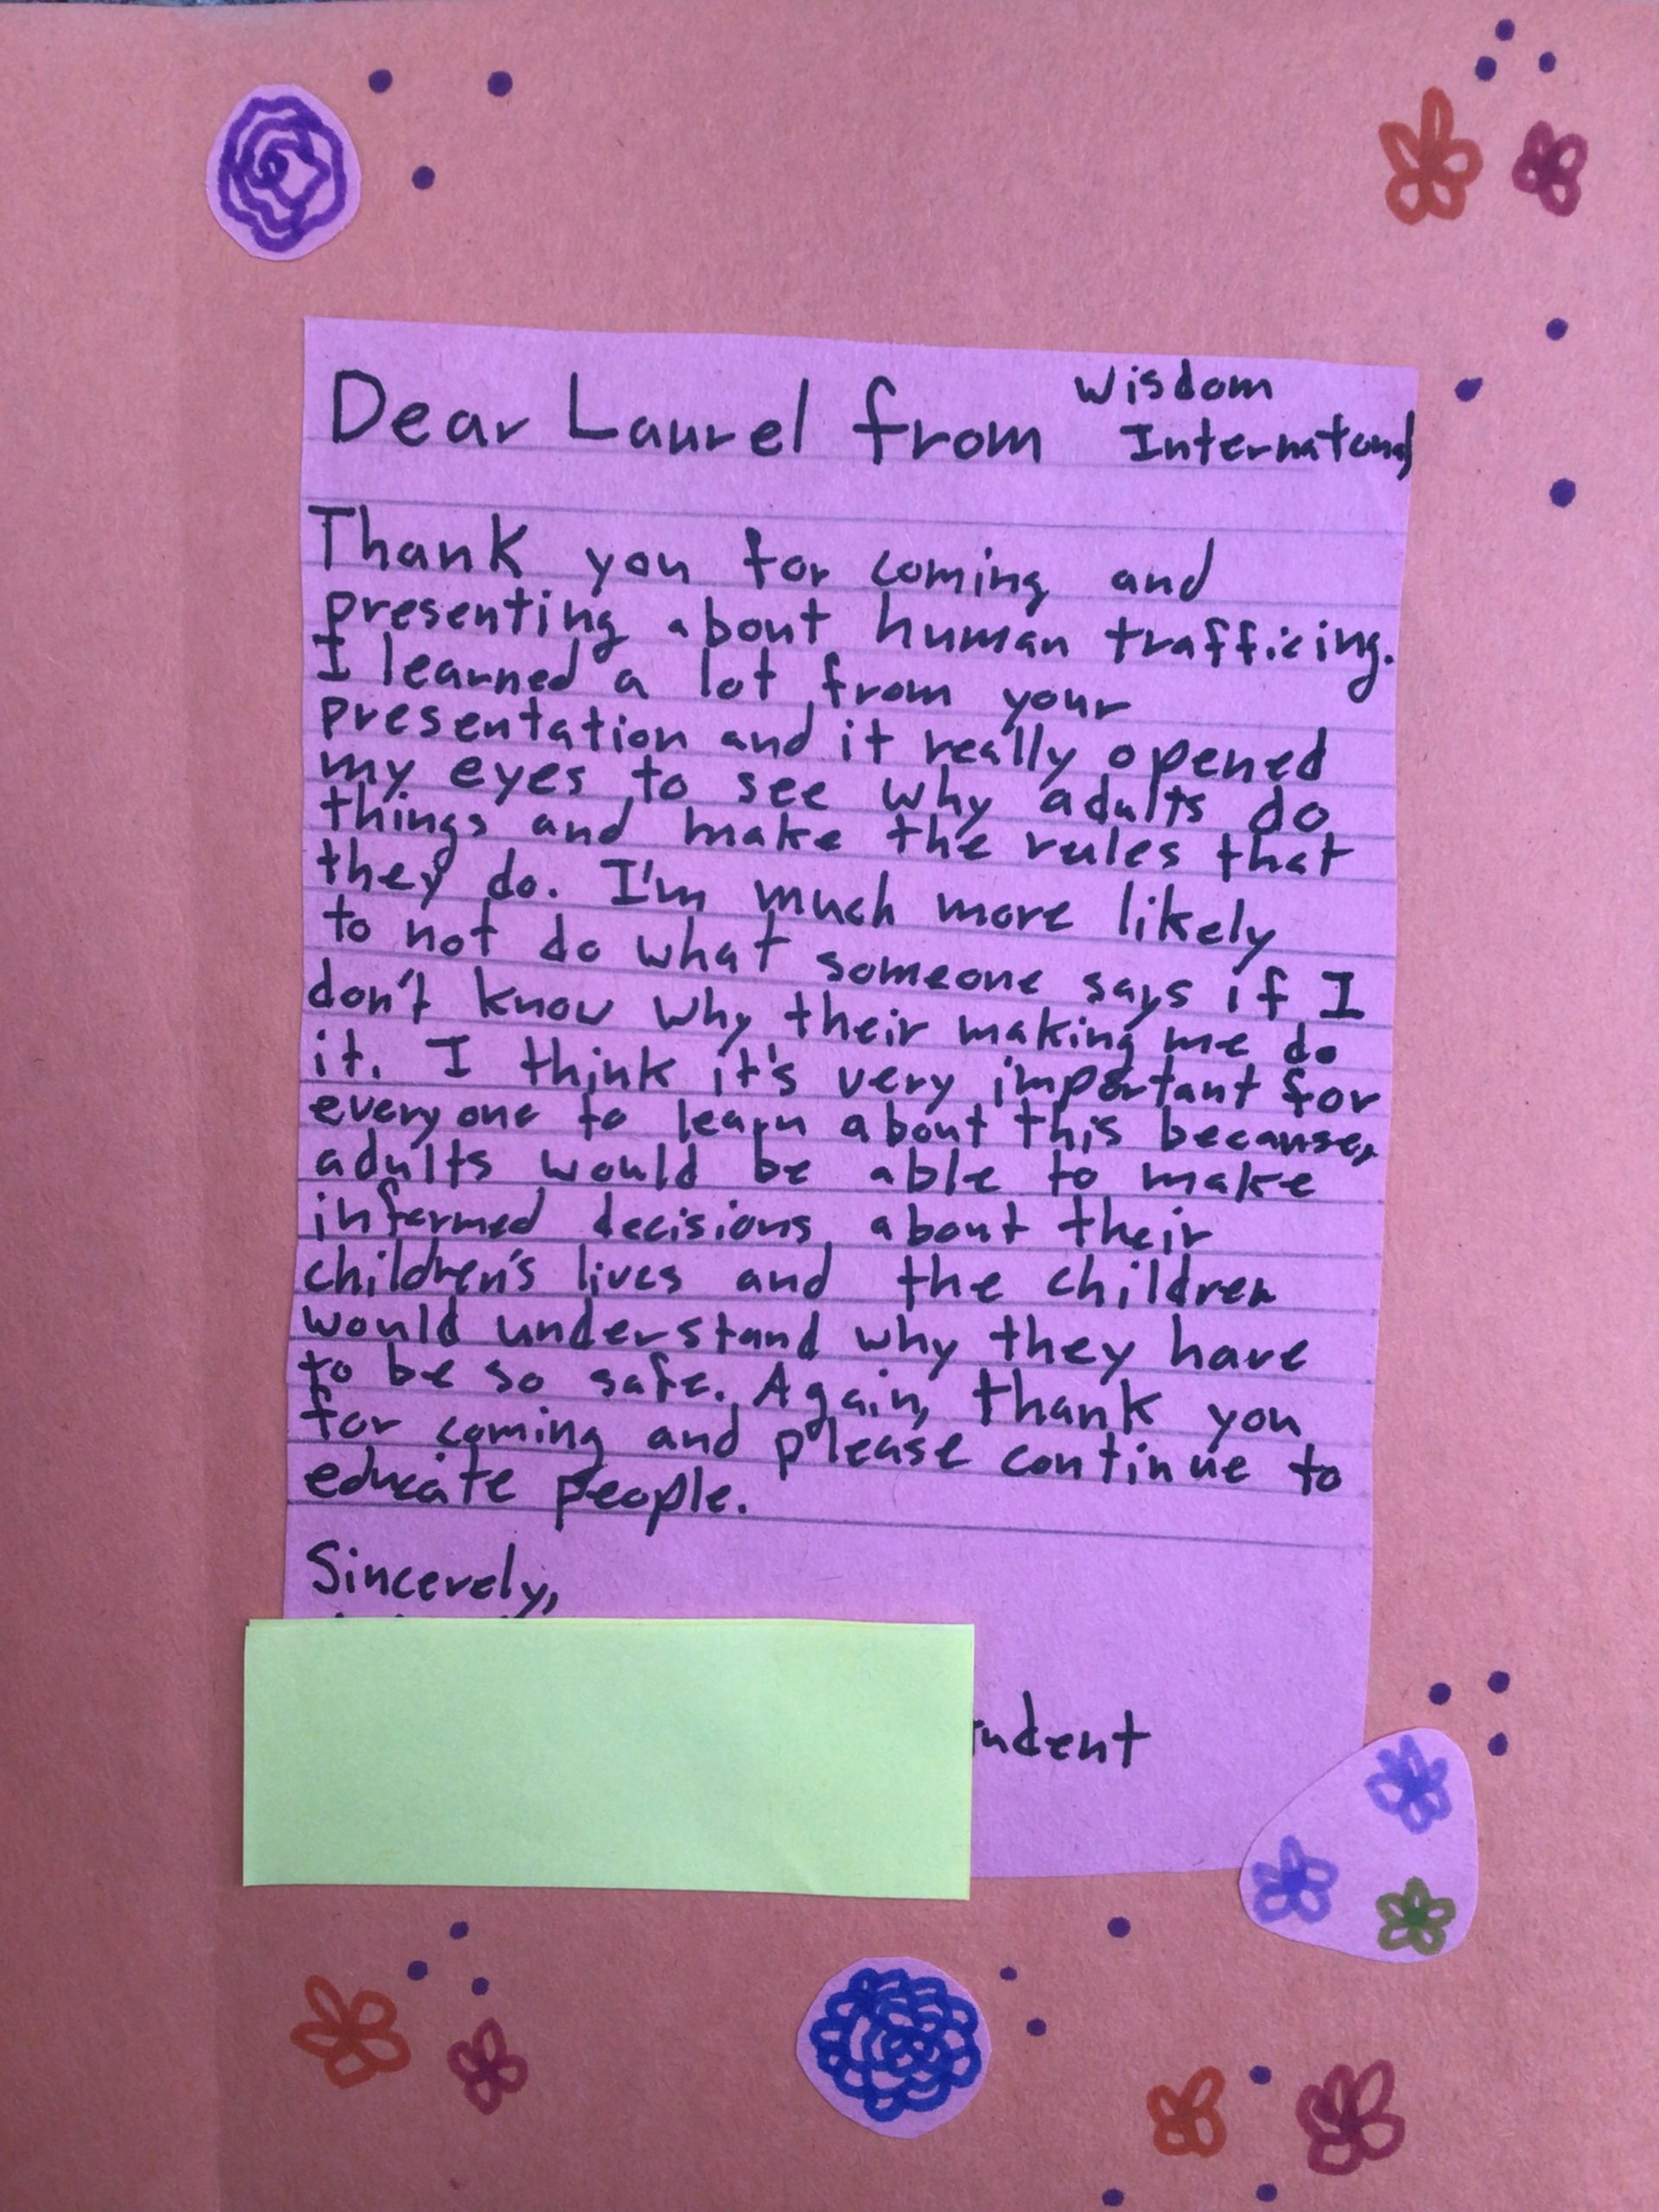 Dear Laurel from Wisdom
Internatonal
Thank you for coming and
presenting about human trafficing.
I learned a lot from your
presentation and it really opened
my eyes to see why adults do
things and make the rules that
they do. I'm much more likely
to not do what someone says if I
don't know why their making me do
it. I think it's very important for
everyone to learn about this because,
adults would be able to make
informed decisions about their
children's lives and the children
would understand why they have
to be so safe. Again, thank you
for coming and please continue to
educate people.
Sincerely,
udent